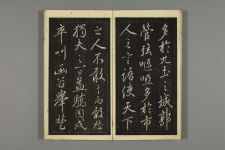 多於九土之城郭
管絃嘔啞多於市
人之言語使天下
之人不敢言而敢怒
獨夫之心日益驕固戍
卒叫函谷舉楚